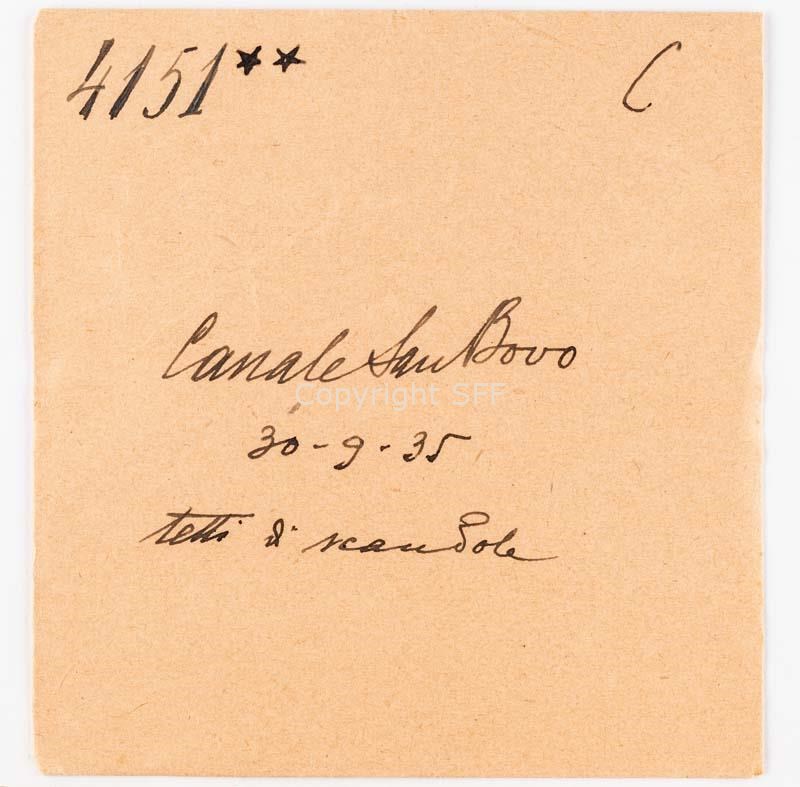 4151**
C
Canale San Bovo
Copyright SFF
30-9-35
tetti di scandole